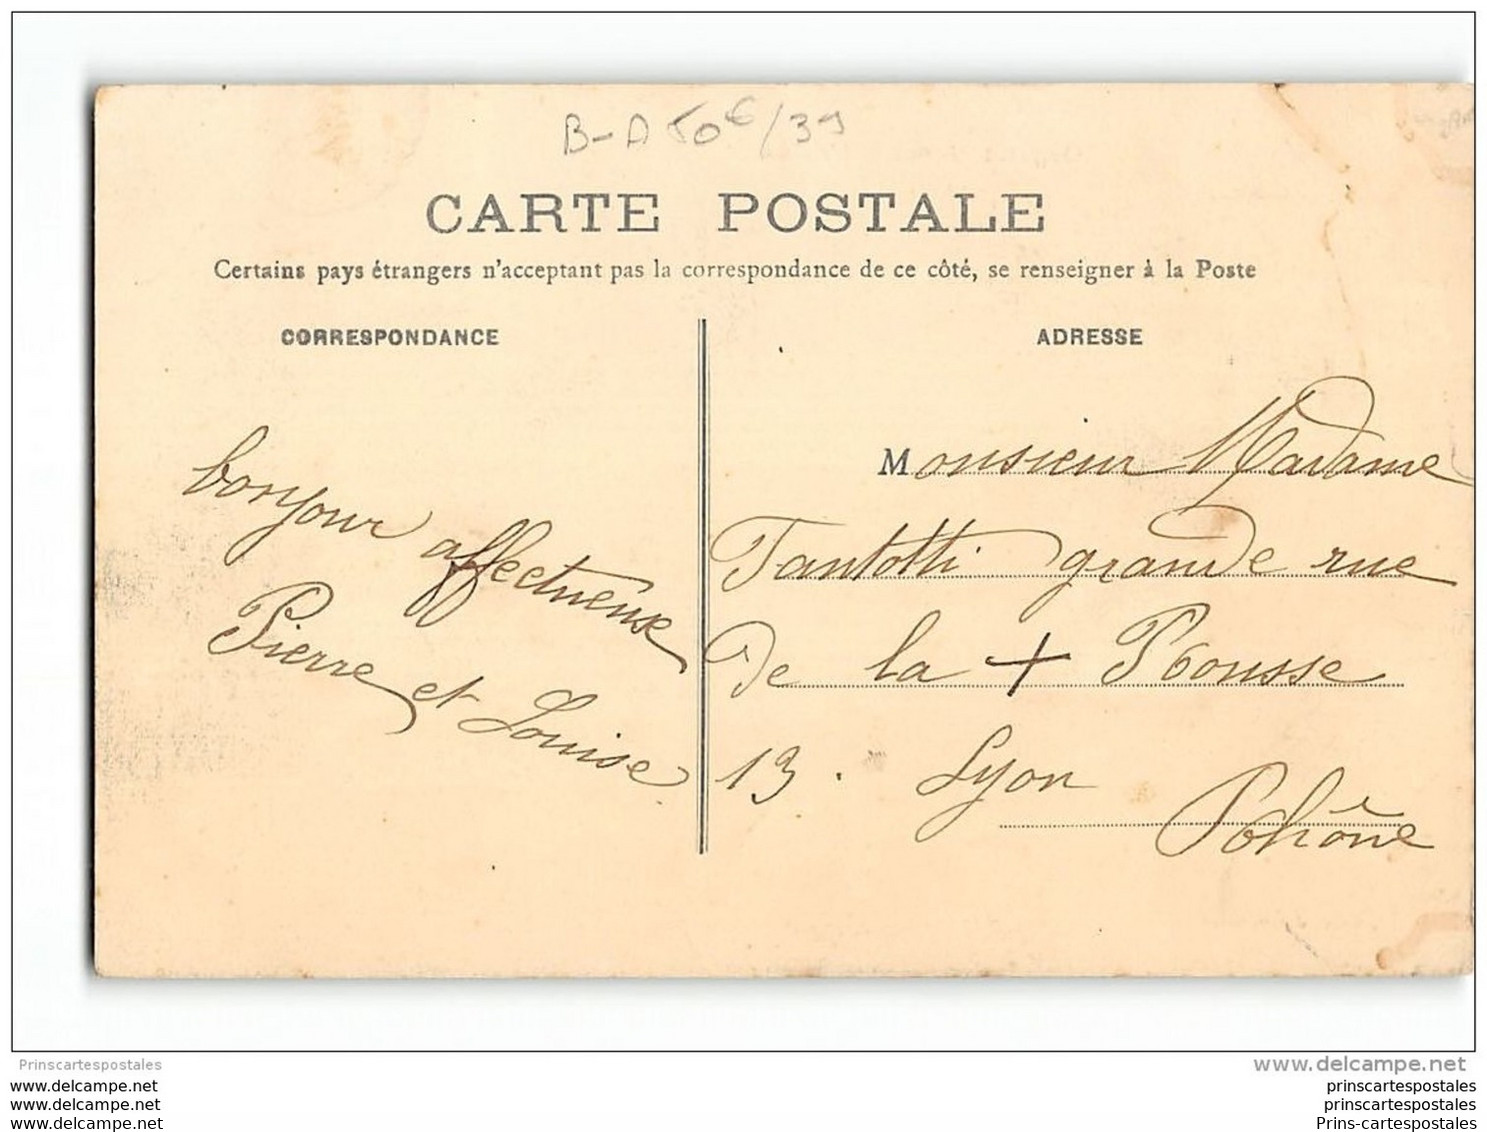 B-A 50€/39
CARTE POSTALE
Certains pays étrangers n'acceptant pas la correspondance de ce côté, se renseigner à la Poste
CORRESPONDANCE
bonjour affectueuse
Pierre et Louise
ADRESSE
Monsieur Madame
Tantotti grande rue
De la + Rousse
13. Lyon
Rhône
Prinscartespostales
www.delcampe.net
www.delcampe.net
www.delcampe.net
www.delcampe.net
prinscartespostales
prinscartespostales
Prins-cartespostales